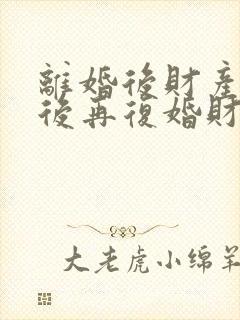 離婚後財產
後再復婚財
大老虎小绵羊